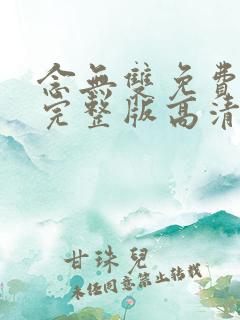 念無雙免費
完整版高清
甘珠兒
未經同意禁止轉載